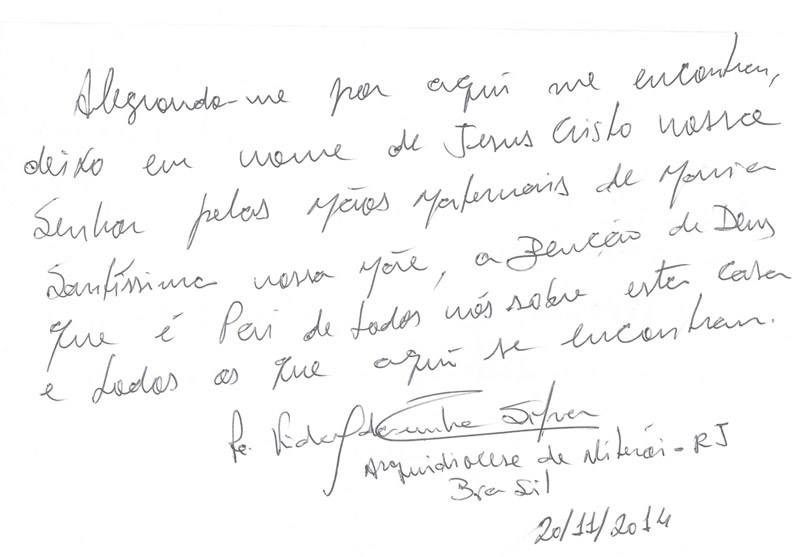 Alegrando-me por aqui me encontrar,
deixo em nome de Jesus Cristo nosso
Senhor pelas Mãos Maternais de Maria
Santíssima nossa Mãe, a Benção de Deus
que é Pai de todos nós sobre esta casa
e todos os que aqui se encontram.
Pe. Silva
Arquidiocese de Niterói - RJ
Brasil
20/11/2014